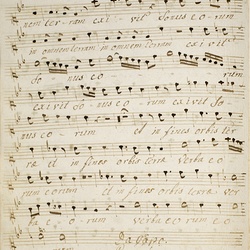 nem terram exivit sonus eorum
in omnem terram in omnem terram exivit
so - nus eo - rum
exivit so - nus eo - rum exivit so -
nus eo - rum et in fines orbis ter
ræ et in fines orbis terræ verba eo
rum eorum et in fines orbis terræ ver
ba eo - rum verba eorum eo
Da Capo.